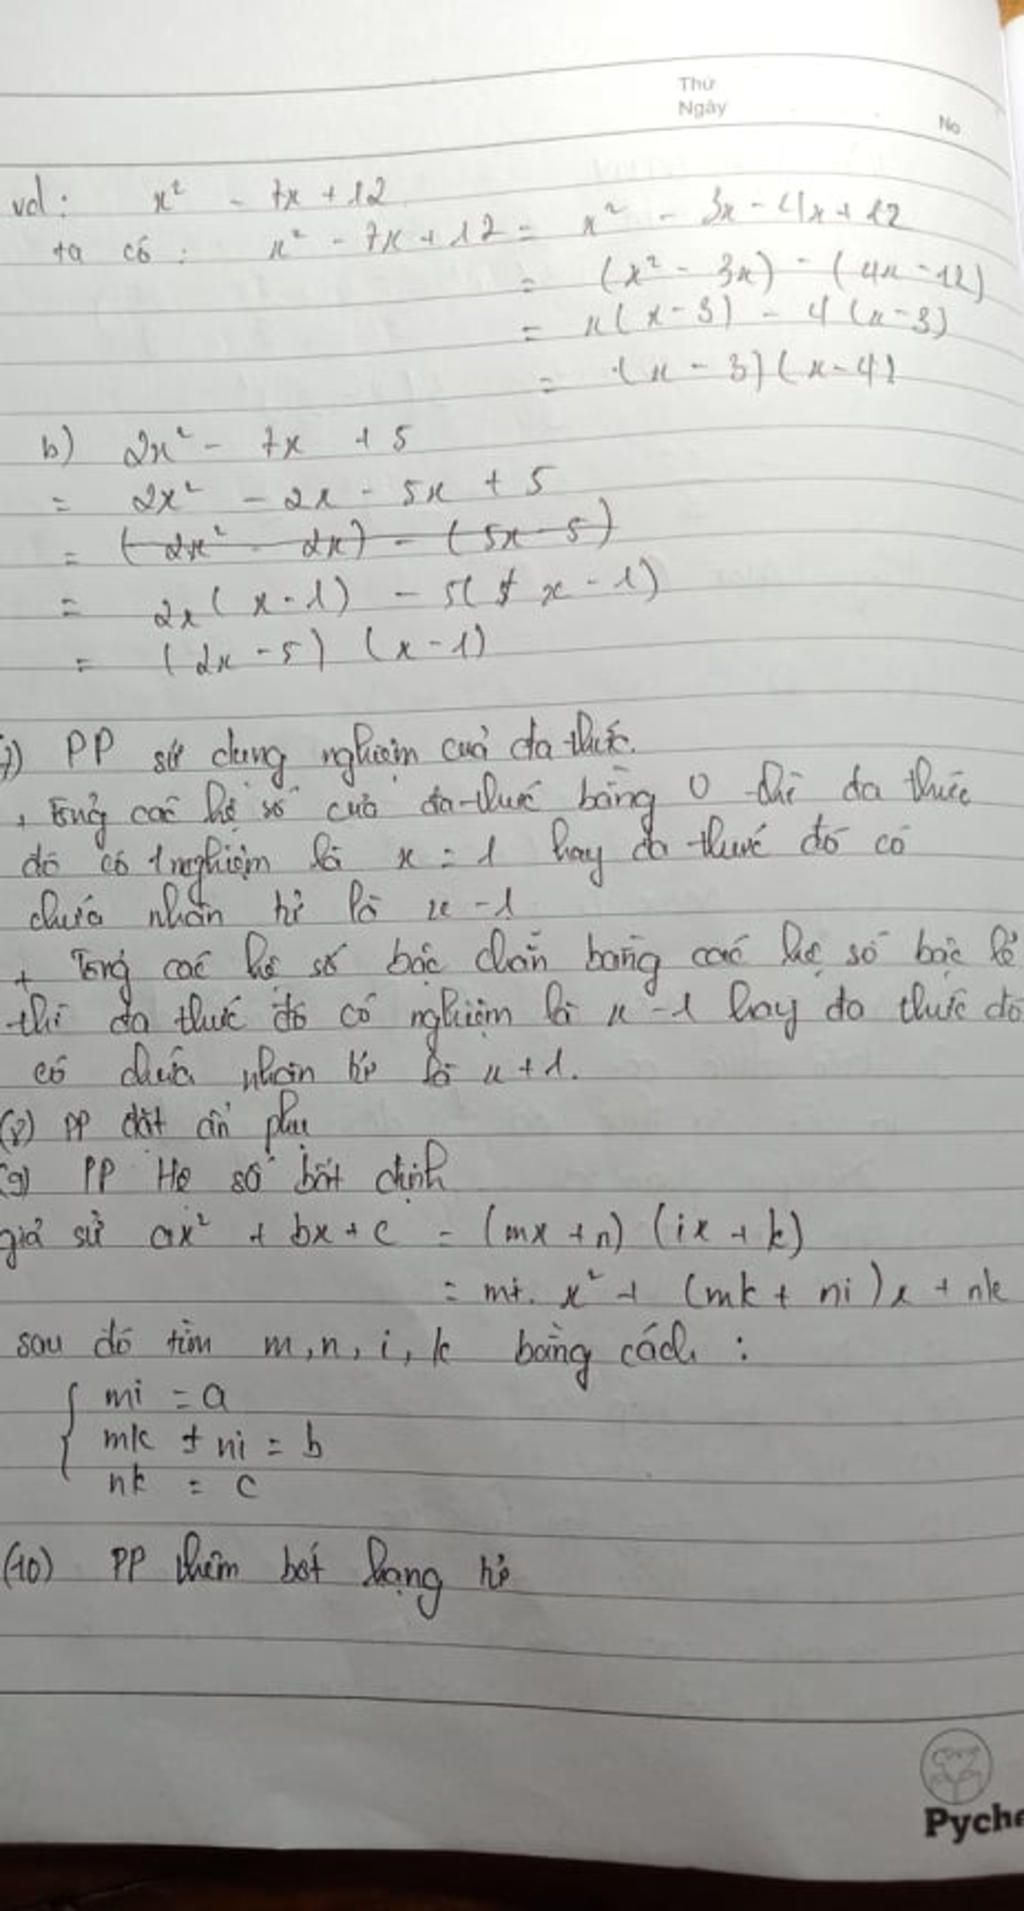 Thứ
Ngày
No
vd: x² - 7x + 12
ta có : x² - 7x + 12 = x² - 3x - 4x + 12
= (x² - 3x) - (4x - 12)
= x(x - 3) - 4(x - 3)
= (x - 3)(x - 4)
b) 2x² - 7x + 5
= 2x² - 2x - 5x + 5
= (2x² - 2x) - (5x - 5)
= 2x(x - 1) - 5(x - 1)
= (2x - 5)(x - 1)
7) PP sử dụng nghiệm của đa thức.
+ Tổng các hệ số của đa thức bằng 0 thì đa thức
đó có 1 nghiệm là x = 1 hay đa thức đó có
chứa nhân tử là x - 1
+ Tổng các hệ số bậc chẵn bằng các hệ số bậc lẻ
thì đa thức đó có nghiệm là x - 1 hay đa thức đó
có chứa nhân tử là x + 1.
(8) PP đặt ẩn phụ
(9) PP Hệ số bất định
giả sử ax² + bx + c = (mx + n)(ix + k)
= mi. x² + (mk + ni)x + nk
sau đó tìm m, n, i, k bằng cách :
{ mi = a
mk + ni = b
nk = c
(10) PP thêm bớt hạng tử